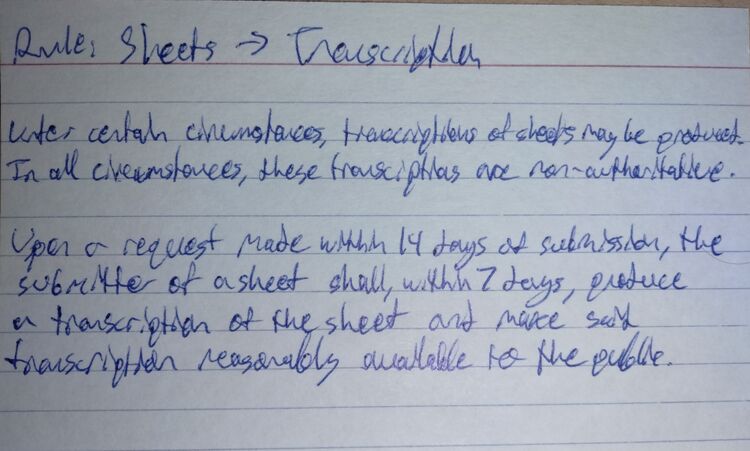 Rule: Sheets → Transcription
Under certain circumstances, transcriptions of sheets may be produced.
In all circumstances, these transcriptions are non-authoritative.
Upon a request made within 14 days of submission, the
submitter of a sheet shall, within 7 days, produce
a transcription of the sheet and make said
transcription reasonably available to the public.